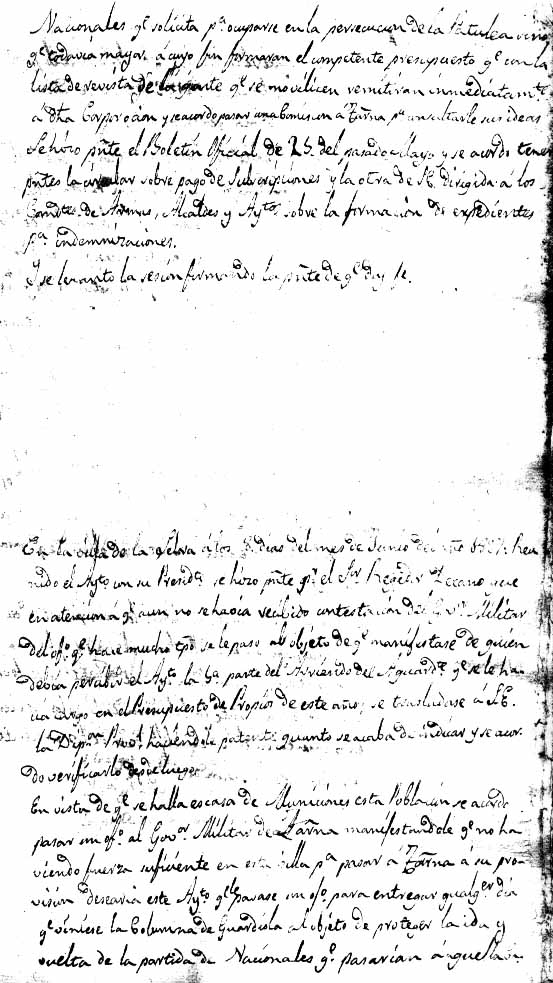 Nacionales qe solicita pa ocuparse en la persecucion de la Patulea
qe todavia mayor. á cuyo fin formaran el competente presupuesto qe con la
lista de revista de la parte qe se movilicen remitiran inmediatamte
á dha Corporacion y se acordó pasar una Comision á Tarrna pa consultarle sus ideas
Se hizo pnte el Boletin Oficial de 25. del pasado Mayo y se acordó tener
pntes la circular sobre pago de Subscripciones y la otra de Sa dirigida á los
Comdtes de Armas, Alcaldes y Aytos sobre la formacion de expedientes
pa indemnizaciones.
Y se levantó la sesion firmando la pnte de qe doy fe.
En la villa de la Selva á los dias del mes de Junio del año 1837: Reu
nido el Ayto con su Presidte se hizo pnte pr el Sor Regidor Decano que
en atencion á qe aun no se habia recibido contestacion del Gor Militar
del ofo qe hace mucho tpo se le pasó al objeto de qe manifestase de quien
debia percibir el Ayto la 5a parte del Arriendo del Aguardte qe se le ha
cia cargo en el Presupuesto de Propios de este año, se trasladase á S.E.
la Dipon Provl haciendole patente quanto se acaba de indicar y se acor
dó verificarlo desde luego
En vista de qe se halla escasa de Municiones esta Poblacion se acordó
pasar un ofo al Govor Militar de Tarrna manifestandole qe no ha
viendo fuerza suficiente en esta villa pa pasar á Tarrna á su pro
vision desearia este Ayto qe le pasase un ofo para entregar qualqer dia
qe viniese la Columna de Guardiola al objeto de proteger la ida y
vuelta de la partida de Nacionales qe pasarian á aquella